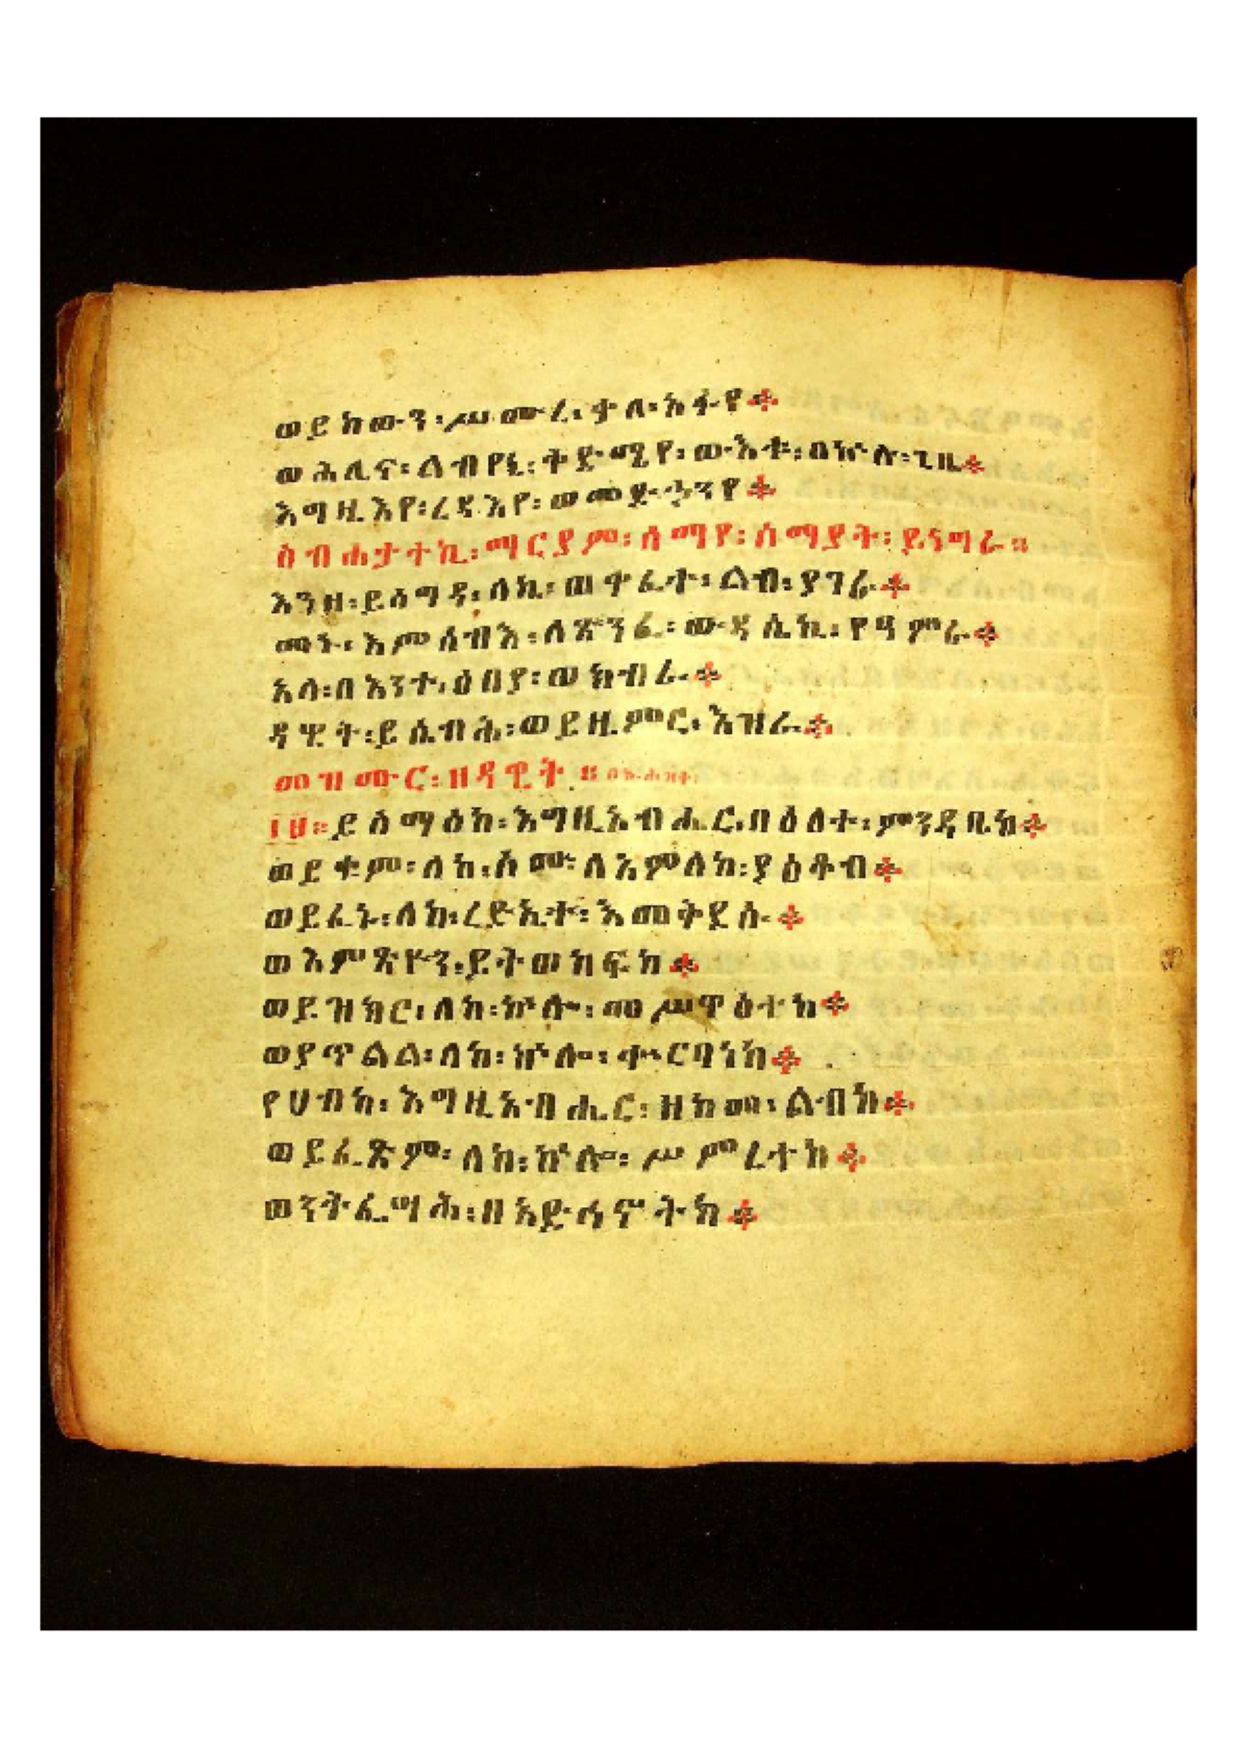 ወይከውን፡ሥሙረ፡ቃለ፡አፉየ፨
ወሕሊና፡ልብየኒ፡ቅድሜየ፡ውእቱ፡በኵሉ፡ጊዜ፨
እግዚእየ፡ረዳእየ፡ወመድኃንየ፨
ስብሐታተኪ፡ማርያም፡ሰማየ፡ሰማያት፡ይነግራ።
እንዘ፡ይሰግዳ፡ለኪ፡ወተፈተ፡ልብ፡ያገራ፨
መኑ፡እምሰብእ፡ለጽንፈ፡ውዳሴኪ፡የዓምራ፨
አላ፡በእንተ፡ዕበያ፡ወክብራ፨
ዳዊት፡ይሴብሕ፡ወይዜምር፡እዝራ፨
መዝሙር፡ዘዳዊት።
፲፱።ይሰማዕከ፡እግዚአብሔር፡በዕለተ፡ምንዳቤከ፨
ወይቁም፡ለከ፡ስሙ፡ለአምላከ፡ያዕቆብ፨
ወይፈኑ፡ለከ፡ረድኤተ፡እመቅደሱ፨
ወእምጽዮን፡ይትወከፍከ፨
ወይዝክር፡ለከ፡ኵሎ፡መሥዋዕተከ፨
ወያጥልል፡ለከ፡ኵሎ፡ቍርባነከ፨
የሀብከ፡እግዚአብሔር፡ዘከመ፡ልብከ፨
ወይፈጽም፡ለከ፡ኵሎ፡ሥምረተከ፨
ወንትፌሣሕ፡በአድኅኖትከ፨